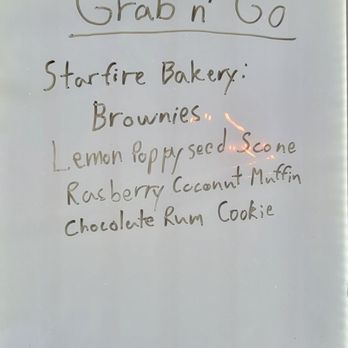 Grab n' Go
Starfire Bakery:
Brownies
Lemon Poppyseed Scone
Rasberry Coconut Muffin
Chocolate Rum Cookie